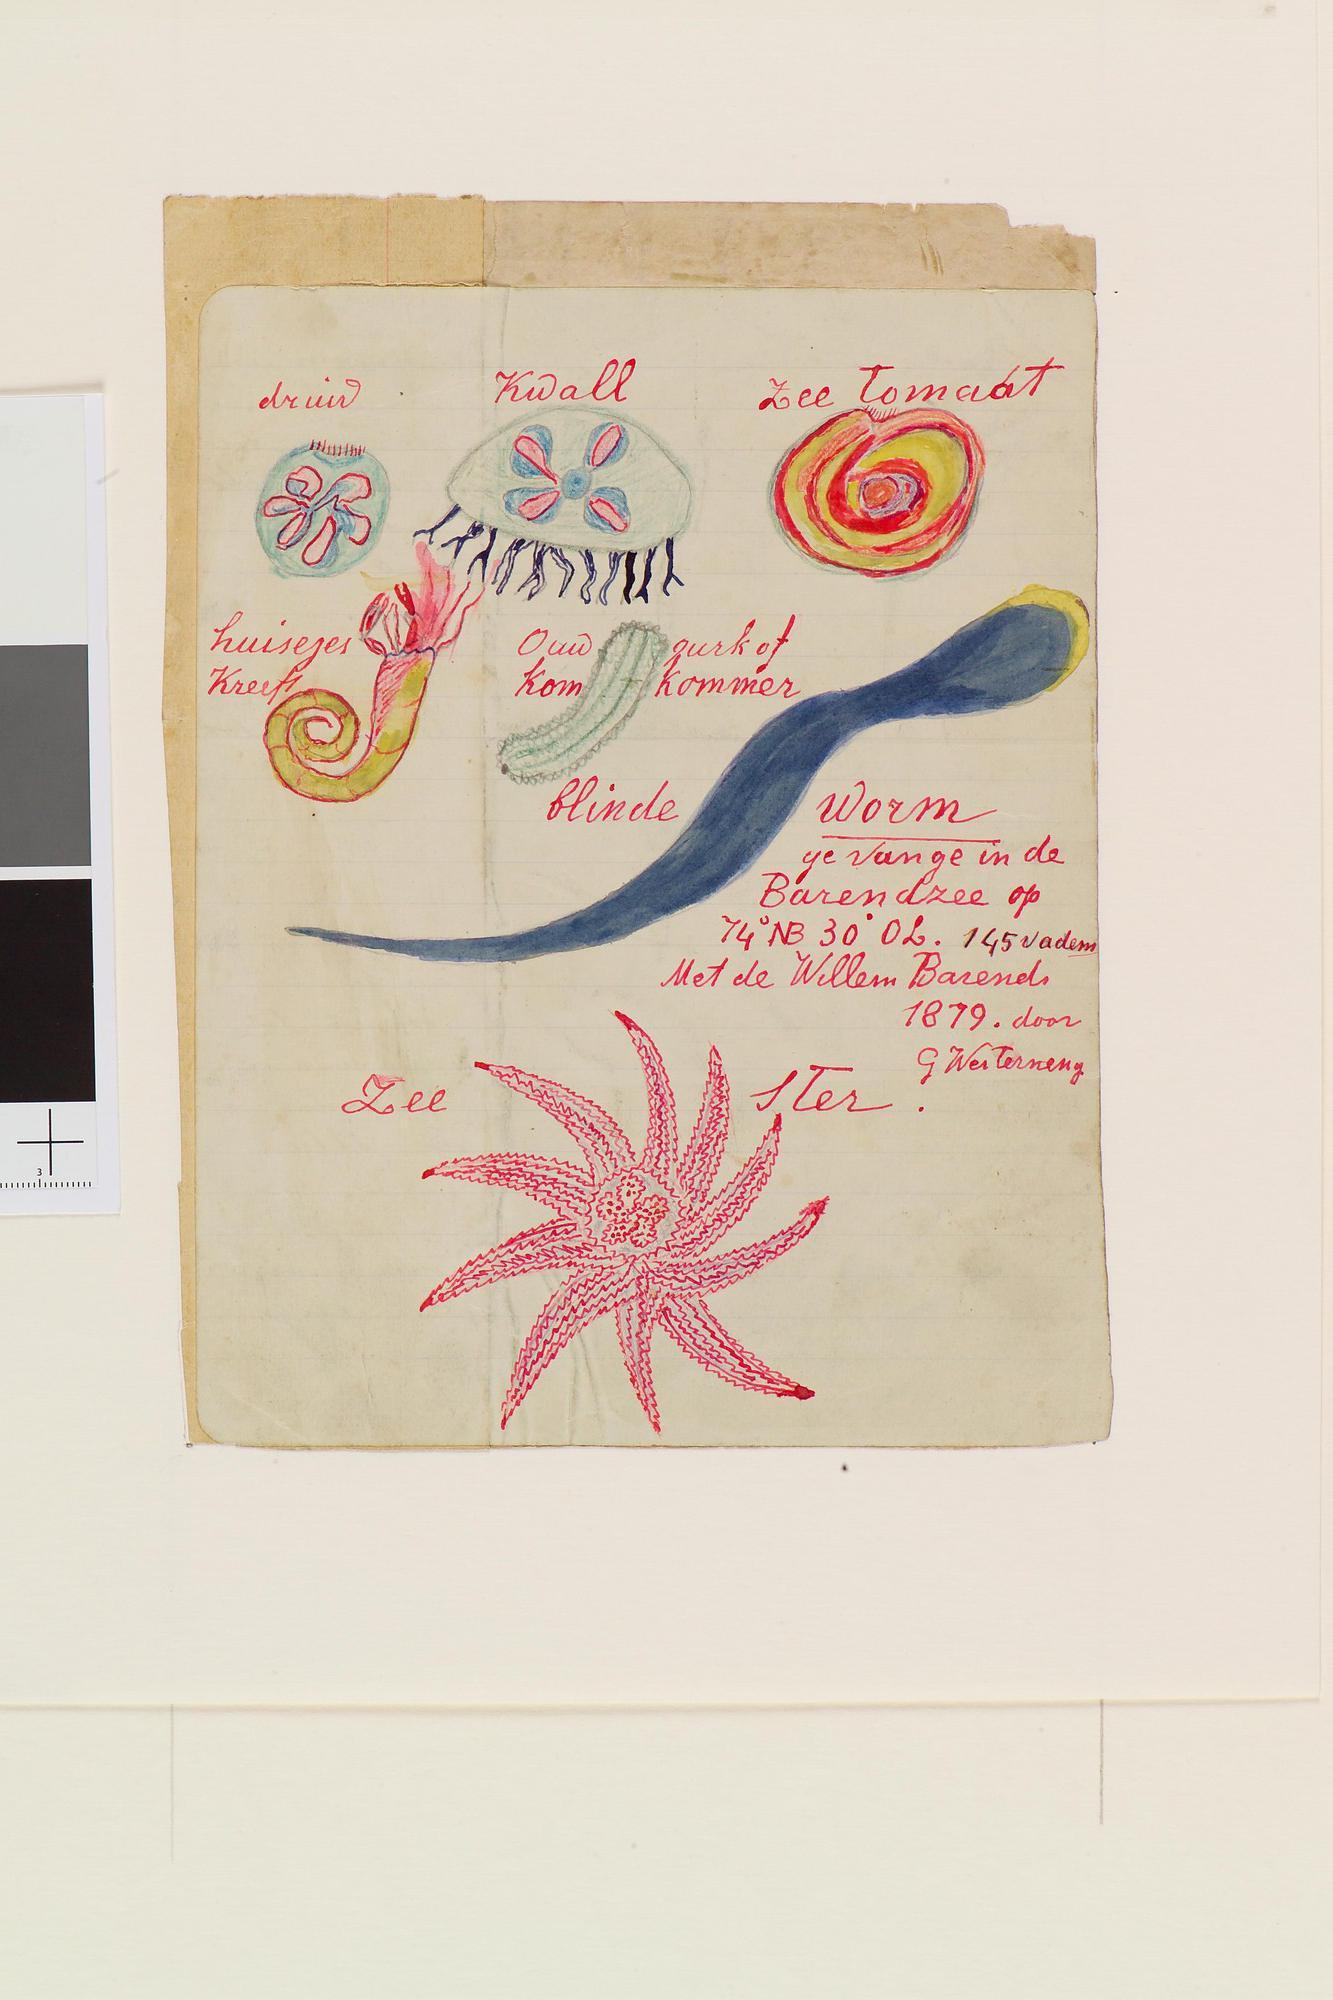 druiv
Kwall
Zee Tomaat
huisejes
Kreeft
Ouw gurk of
kom kommer
blinde Worm
gevange in de
Barendzee op
74° NB 30° OL. 145 vadem
Met de Willem Barends
1879. door
G Westerneng
Zee Ster.
3